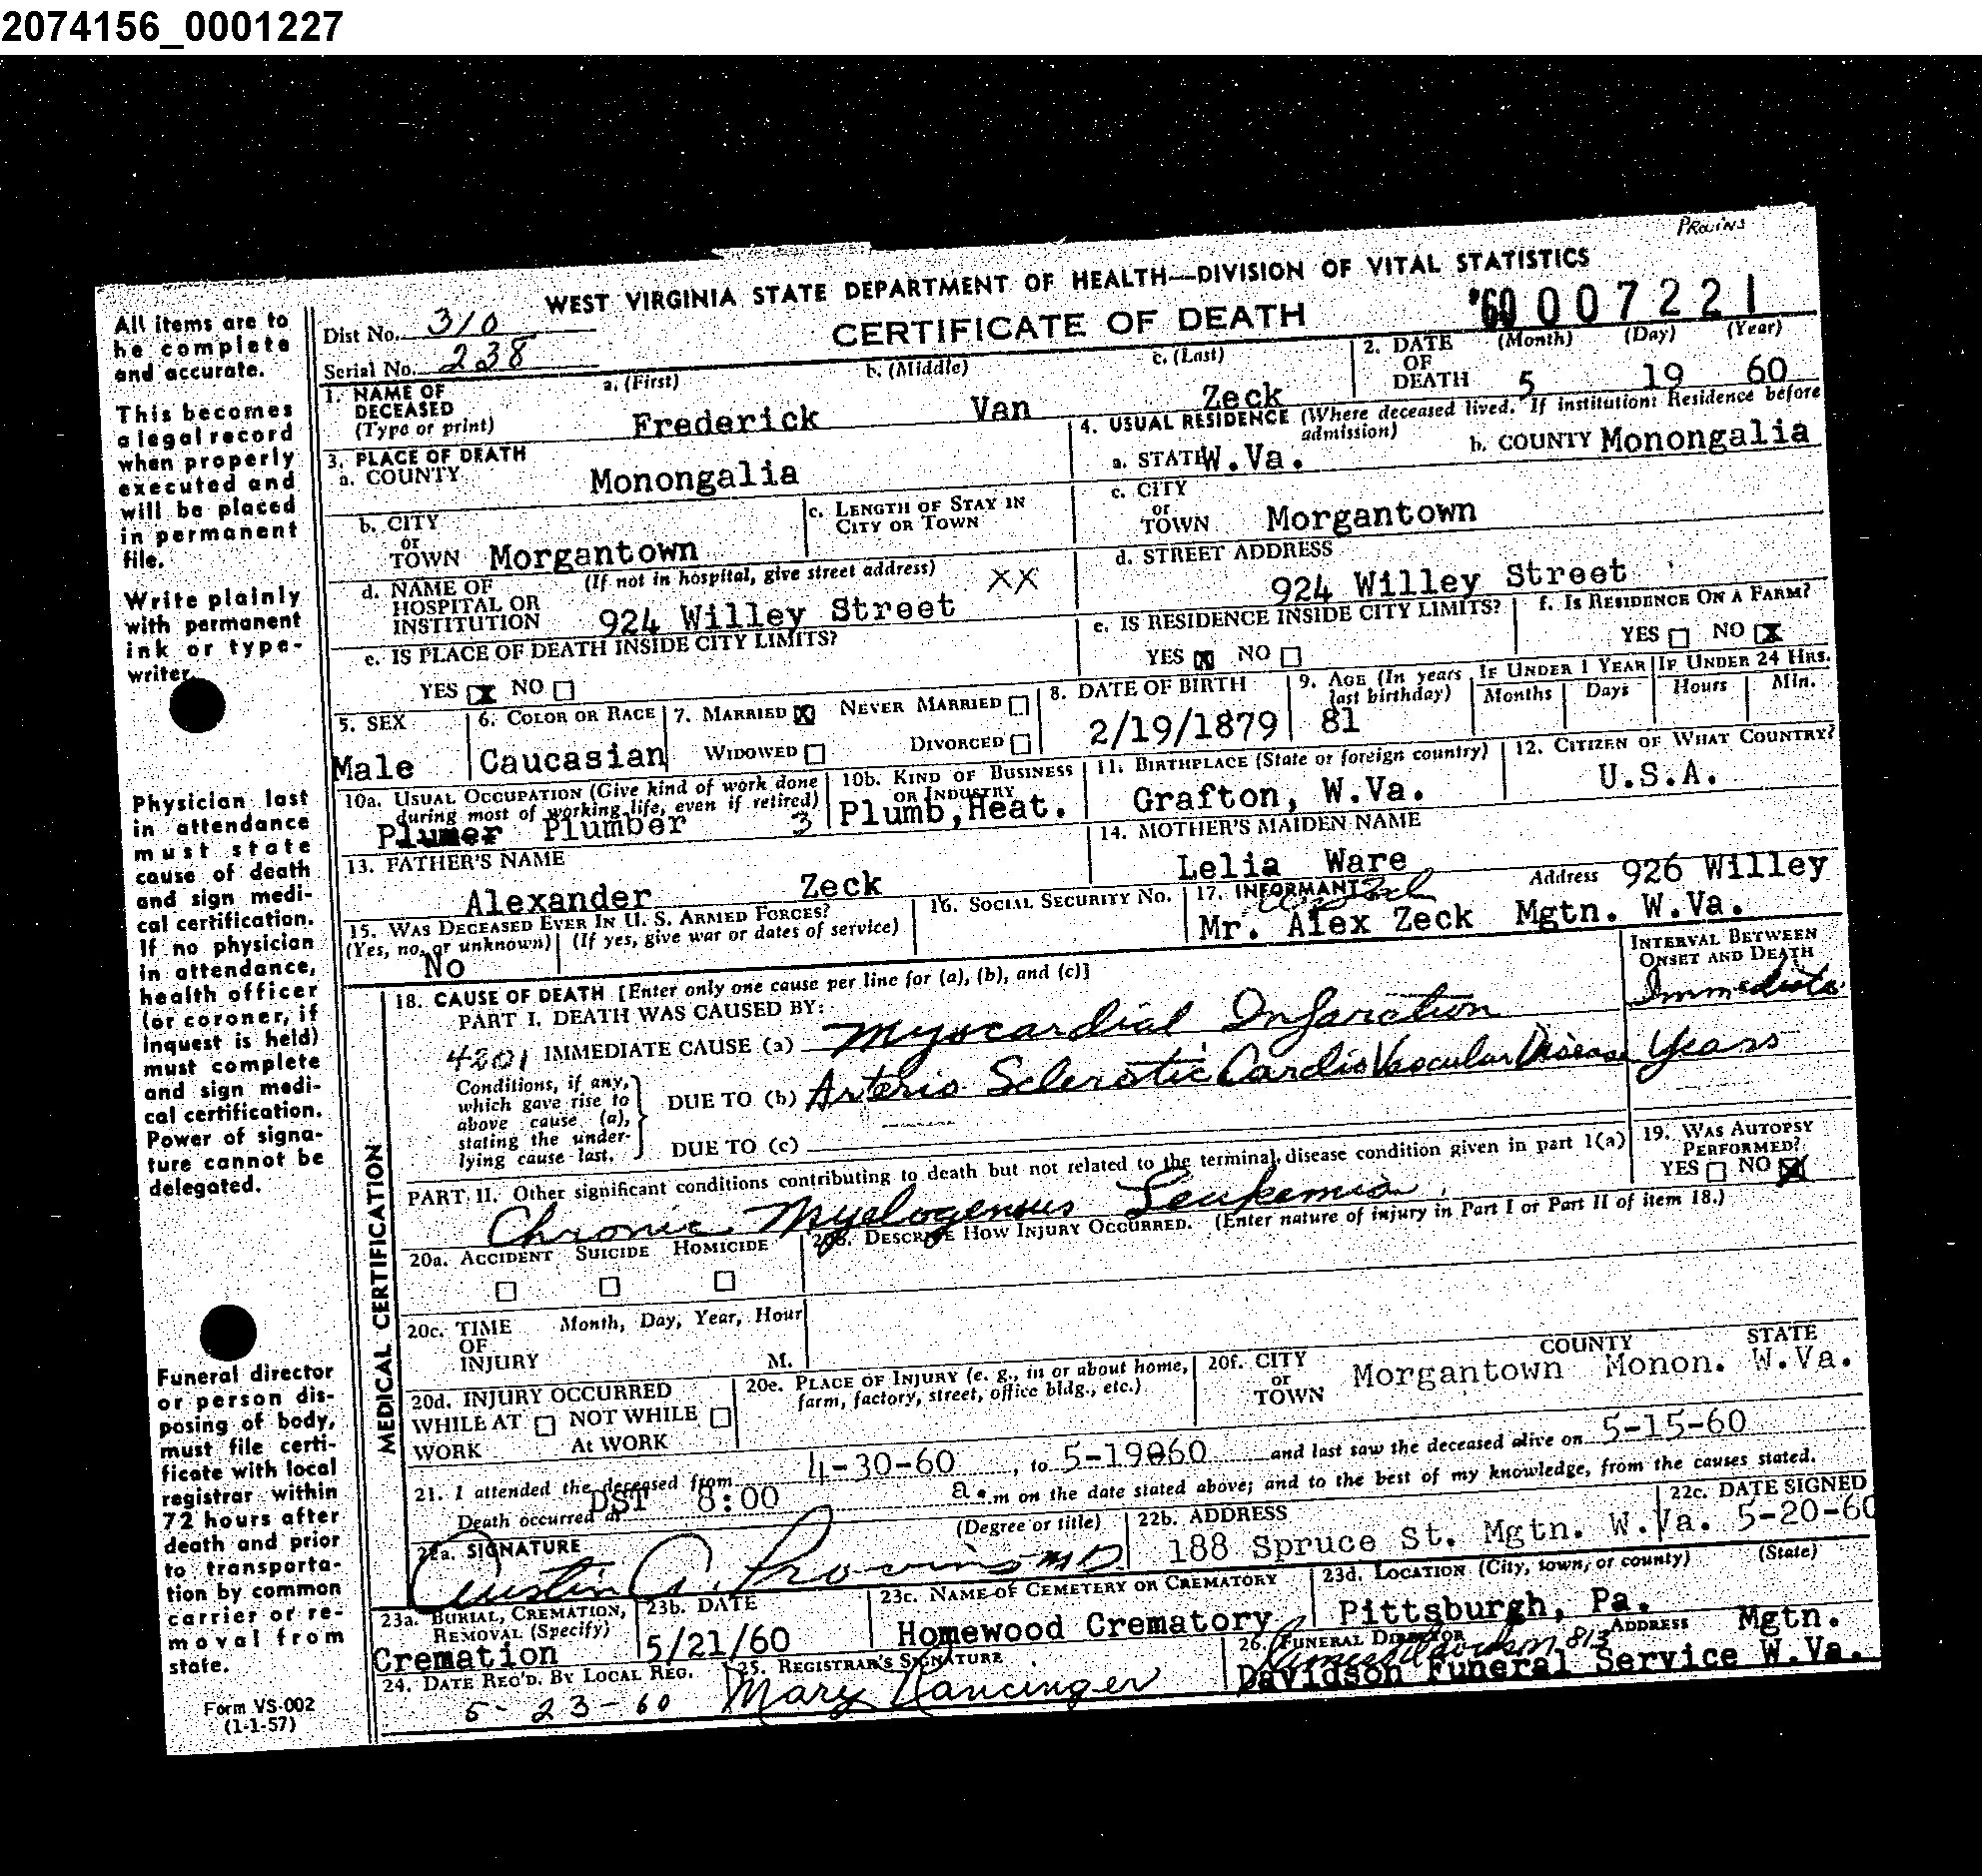 2074156_0001227
Prains
WEST VIRGINIA STATE DEPARTMENT OF HEALTH—DIVISION OF VITAL STATISTICS
CERTIFICATE OF DEATH
'60 007221
Dist No. 310
Serial No. 238
All items are to
be complete
and accurate.
This becomes
a legal record
when properly
executed and
will be placed
in permanent
file.
Write plainly
with permanent
ink or type-
writer.
Physician last
in attendance
must state
cause of death
and sign medi-
cal certification.
If no physician
in attendance,
health officer
(or coroner, if
inquest is held)
must complete
and sign medi-
cal certification.
Power of signa-
ture cannot be
delegated.
Funeral director
or person dis-
posing of body,
must file certi-
ficate with local
registrar within
72 hours after
death and prior
to transporta-
tion by common
carrier or re-
moval from
state.
Form VS-002
(1-1-57)
1. NAME OF DECEASED (Type or print) a. (First) b. (Middle) c. (Last)
Frederick Van Zeck
2. DATE OF DEATH (Month) (Day) (Year)
5 19 60
3. PLACE OF DEATH
a. COUNTY Monongalia
b. CITY or TOWN Morgantown
c. LENGTH OF STAY IN CITY OR TOWN
d. NAME OF HOSPITAL OR INSTITUTION (If not in hospital, give street address) XX
924 Willey Street
e. IS PLACE OF DEATH INSIDE CITY LIMITS?
YES X NO
4. USUAL RESIDENCE (Where deceased lived. If institution: Residence before admission)
a. STATE W.Va. b. COUNTY Monongalia
c. CITY or TOWN Morgantown
d. STREET ADDRESS
924 Willey Street
e. IS RESIDENCE INSIDE CITY LIMITS?
YES X NO
f. IS RESIDENCE ON A FARM?
YES NO X
5. SEX
Male
6. COLOR OR RACE
Caucasian
7. MARRIED X NEVER MARRIED
WIDOWED DIVORCED
8. DATE OF BIRTH
2/19/1879
9. AGE (In years last birthday)
81
IF UNDER 1 YEAR
Months Days
IF UNDER 24 HRS.
Hours Min.
10a. USUAL OCCUPATION (Give kind of work done during most of working life, even if retired)
Plumer Plumber 3
10b. KIND OF BUSINESS OR INDUSTRY
Plumb,Heat.
11. BIRTHPLACE (State or foreign country)
Grafton, W.Va.
12. CITIZEN OF WHAT COUNTRY?
U.S.A.
13. FATHER'S NAME
Alexander Zeck
14. MOTHER'S MAIDEN NAME
Lelia Ware
15. WAS DECEASED EVER IN U. S. ARMED FORCES?
(Yes, no, or unknown) (If yes, give war or dates of service)
No
16. SOCIAL SECURITY No.
17. INFORMANT Address 926 Willey
Mr. Alex Zeck Mgtn. W.Va.
MEDICAL CERTIFICATION
18. CAUSE OF DEATH [Enter only one cause per line for (a), (b), and (c)]
INTERVAL BETWEEN ONSET AND DEATH
PART I. DEATH WAS CAUSED BY:
4201 IMMEDIATE CAUSE (a) Myocardial Infarction Immediate
Conditions, if any, which gave rise to above cause (a), stating the underlying cause last.
DUE TO (b) Arterio Sclerotic Cardio Vascular Disease Years
DUE TO (c)
PART II. Other significant conditions contributing to death but not related to the terminal disease condition given in part I(a)
Chronic Myelogenous Leukemia
19. WAS AUTOPSY PERFORMED?
YES NO X
20a. ACCIDENT SUICIDE HOMICIDE
20b. DESCRIBE HOW INJURY OCCURRED. (Enter nature of injury in Part I or Part II of item 18.)
20c. TIME OF INJURY Month, Day, Year, Hour
M.
20d. INJURY OCCURRED
WHILE AT WORK NOT WHILE At WORK
20e. PLACE OF INJURY (e. g., in or about home, farm, factory, street, office bldg., etc.)
20f. CITY or TOWN COUNTY STATE
Morgantown Monon. W.Va.
21. I attended the deceased from 4-30-60, to 5-19060 and last saw the deceased alive on 5-15-60
Death occurred at DST 8:00 a.m on the date stated above; and to the best of my knowledge, from the causes stated.
22a. SIGNATURE (Degree or title)
Austin A. Provins MD
22b. ADDRESS
188 Spruce St. Mgtn. W.Va.
22c. DATE SIGNED
5-20-60
23a. BURIAL, CREMATION, REMOVAL (Specify)
Cremation
23b. DATE
5/21/60
23c. NAME OF CEMETERY OR CREMATORY
Homewood Crematory
23d. LOCATION (City, town, or county) (State)
Pittsburgh, Pa.
24. DATE REC'D. BY LOCAL REG.
5-23-60
25. REGISTRAR'S SIGNATURE
Mary
26. FUNERAL DIRECTOR 813 ADDRESS Mgtn.
Davidson Funeral Service W.Va.